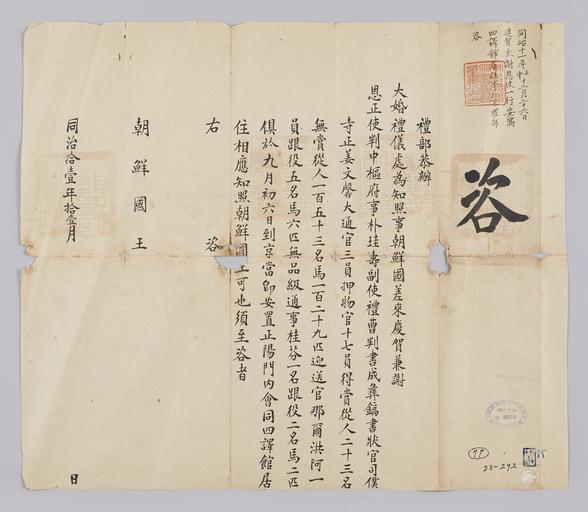 咨
同治十一年壬申十二月二十六日
進賀兼謝恩使一行安寓
四譯館居住事北京禮部
咨
禮部恭辦
大婚禮儀處為知照事朝鮮國差來慶賀兼謝
恩正使判中樞府事朴珪壽副使禮曹判書成彝鎬書狀官司僕
寺正姜文馨大通官三員押物官十七員得賞從人二十三名
無賞從人一百五十三名馬一百二十九匹迎送官那爾洪阿一
員跟役五名馬六匹無品級通事桂芬一名跟役二名馬二匹
俱於九月初六日到京當即安置正陽門內會同四譯館居
住相應知照朝鮮國王可也須至咨者
右咨
朝鮮國王
同治拾壹年拾壹月 日
77
28-292